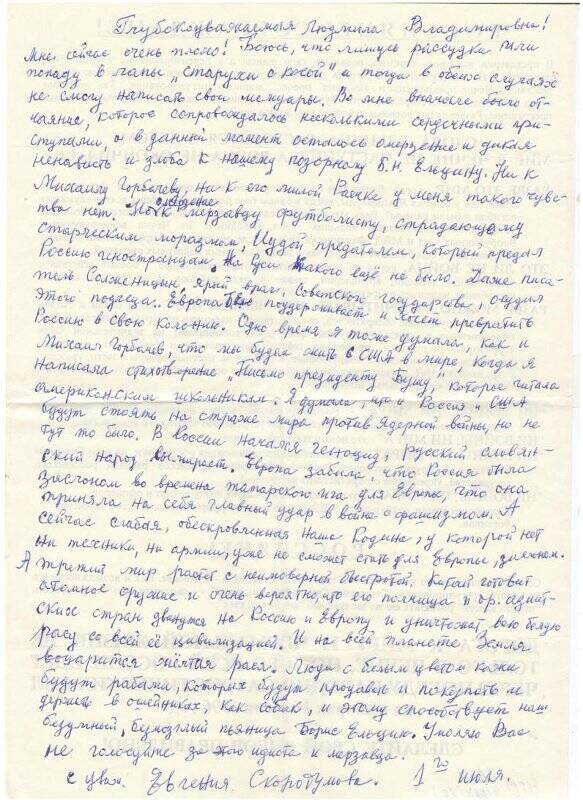 Глубокоуважаемая Людмила Владимировна!
Мне сейчас очень плохо! Боюсь, что лишусь рассудка или
попаду в лапы „старухи с косой" и тогда в обеих случаях
не смогу написать свои мемуары. Во мне вначале было от-
чаяние, которое сопровождалось несколькими сердечными при-
ступами, а в данный момент осталось омерзение и дикая
ненависть и злоба к нашему позорному Б.Н. Ельцину. Ни к
Михаилу Горбачеву, ни к его милой Раечке у меня такого чувс-
тва нет.
мерзавцу футболисту, страдающему
старческим маразмом, Иудой предателем, который предал
Россию иностранцам. На Руси такого ещё не было. Даже писа-
тель Солженицын, ярый враг, Советского государства, осудил
этого подлеца. Европа его поддерживает и хочет превратить
Россию в свою колонию. Одно время я тоже думала, как и
Михаил Горбачев, что мы будем жить с США в мире, когда я
написала стихотворение „Письмо президенту Бушу", которое читала
американским школьникам. Я думала, что и Россия и США
будут стоять на страже мира против ядерной войны, но не
тут то было. В России начался геноцид, русский славян-
ский народ вымирает. Европа забыла, что Россия была
заслоном во времена татарского ига для Европы, что она
приняла на себя главный удар в войне с фашизмом. А
сейчас слабая, обескровленная наша Родина, у которой нет
ни техники, ни армии, уже не сможет стать для Европы заслоном.
А третий мир растёт с неимоверной быстротой. Китай готовит
атомное оружие и очень вероятно, что его полчища и др. азиат-
ских стран двинутся на Россию и Европу и уничтожат всю белую
расу со всей её цивилизацией. И на всей планете Земля
воцарится жёлтая раса. Люди с белым цветом кожи
будут рабами, которых будут продавать и покупать и
держать в ошейниках, как собак, и этому способствует наш
безумный, безмозглый пьяница Борис Ельцин. Умоляю Вас
не голосуйте за этого идиота и мерзавца.
с уваж. Евгения Скородумова. 1го июля.